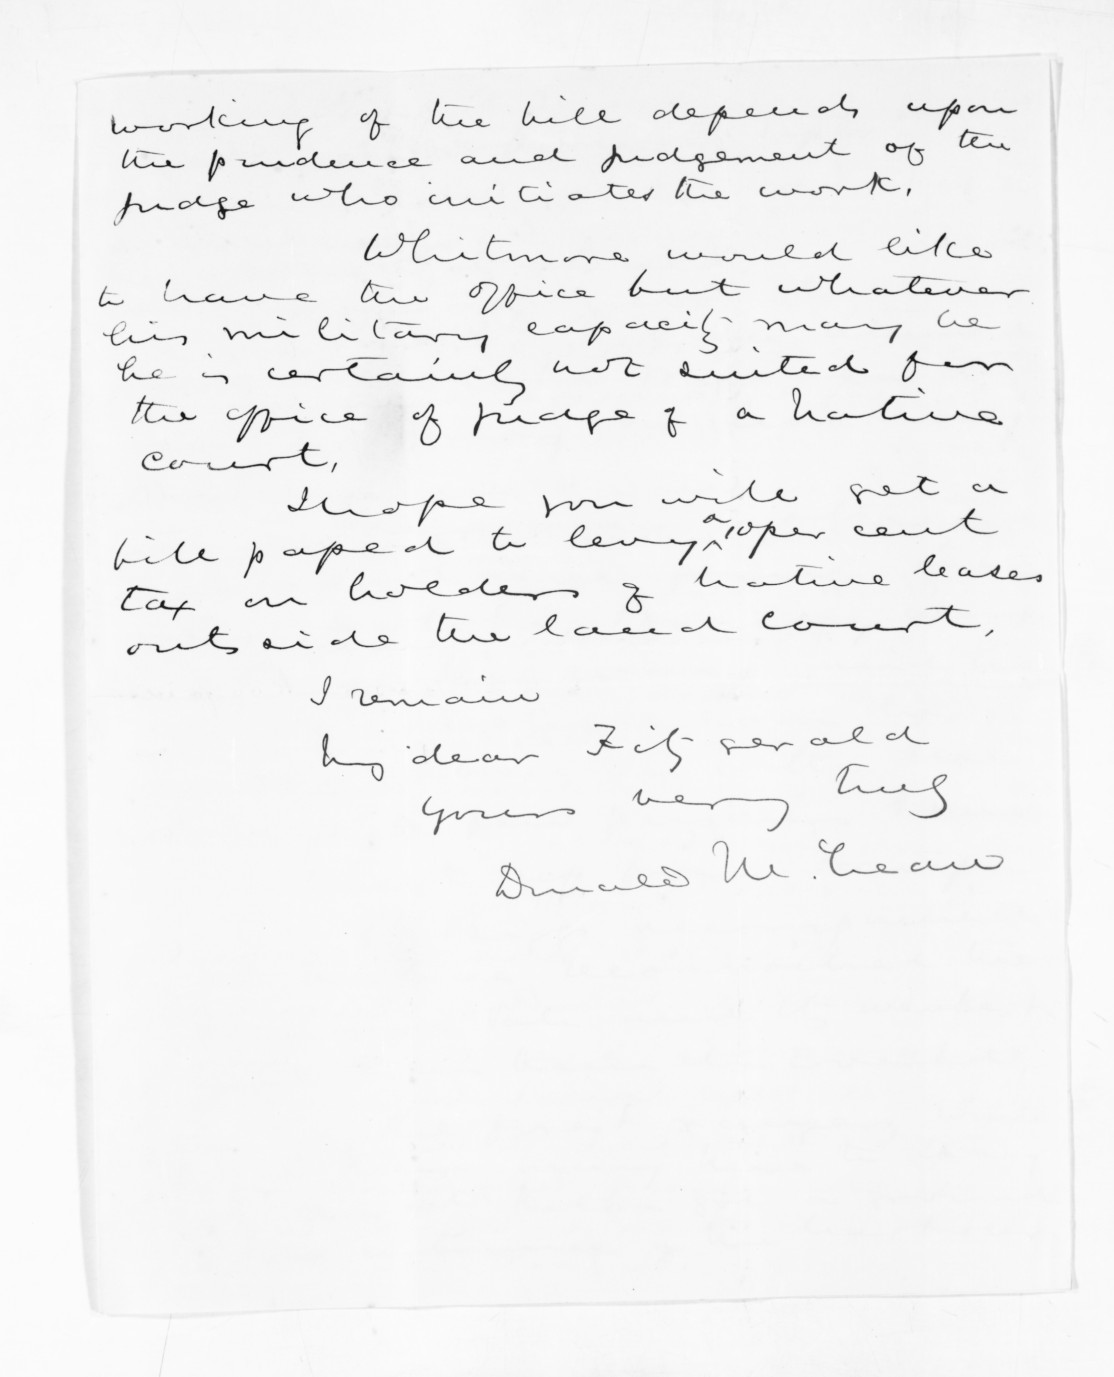 working of the bill depends upon
the prudence and judgement of the
judge who initiates the work.
Whitmore would like
to have the office but whatever
his military capacity may be
he is certainly not suited for
the office of judge of a native
court.
I hope you will get a
bill passed to levy a 10 per cent
tax on holders of native leases
outside the land court.
I remain
My dear Fitzgerald
yours very truly
Donald McLean